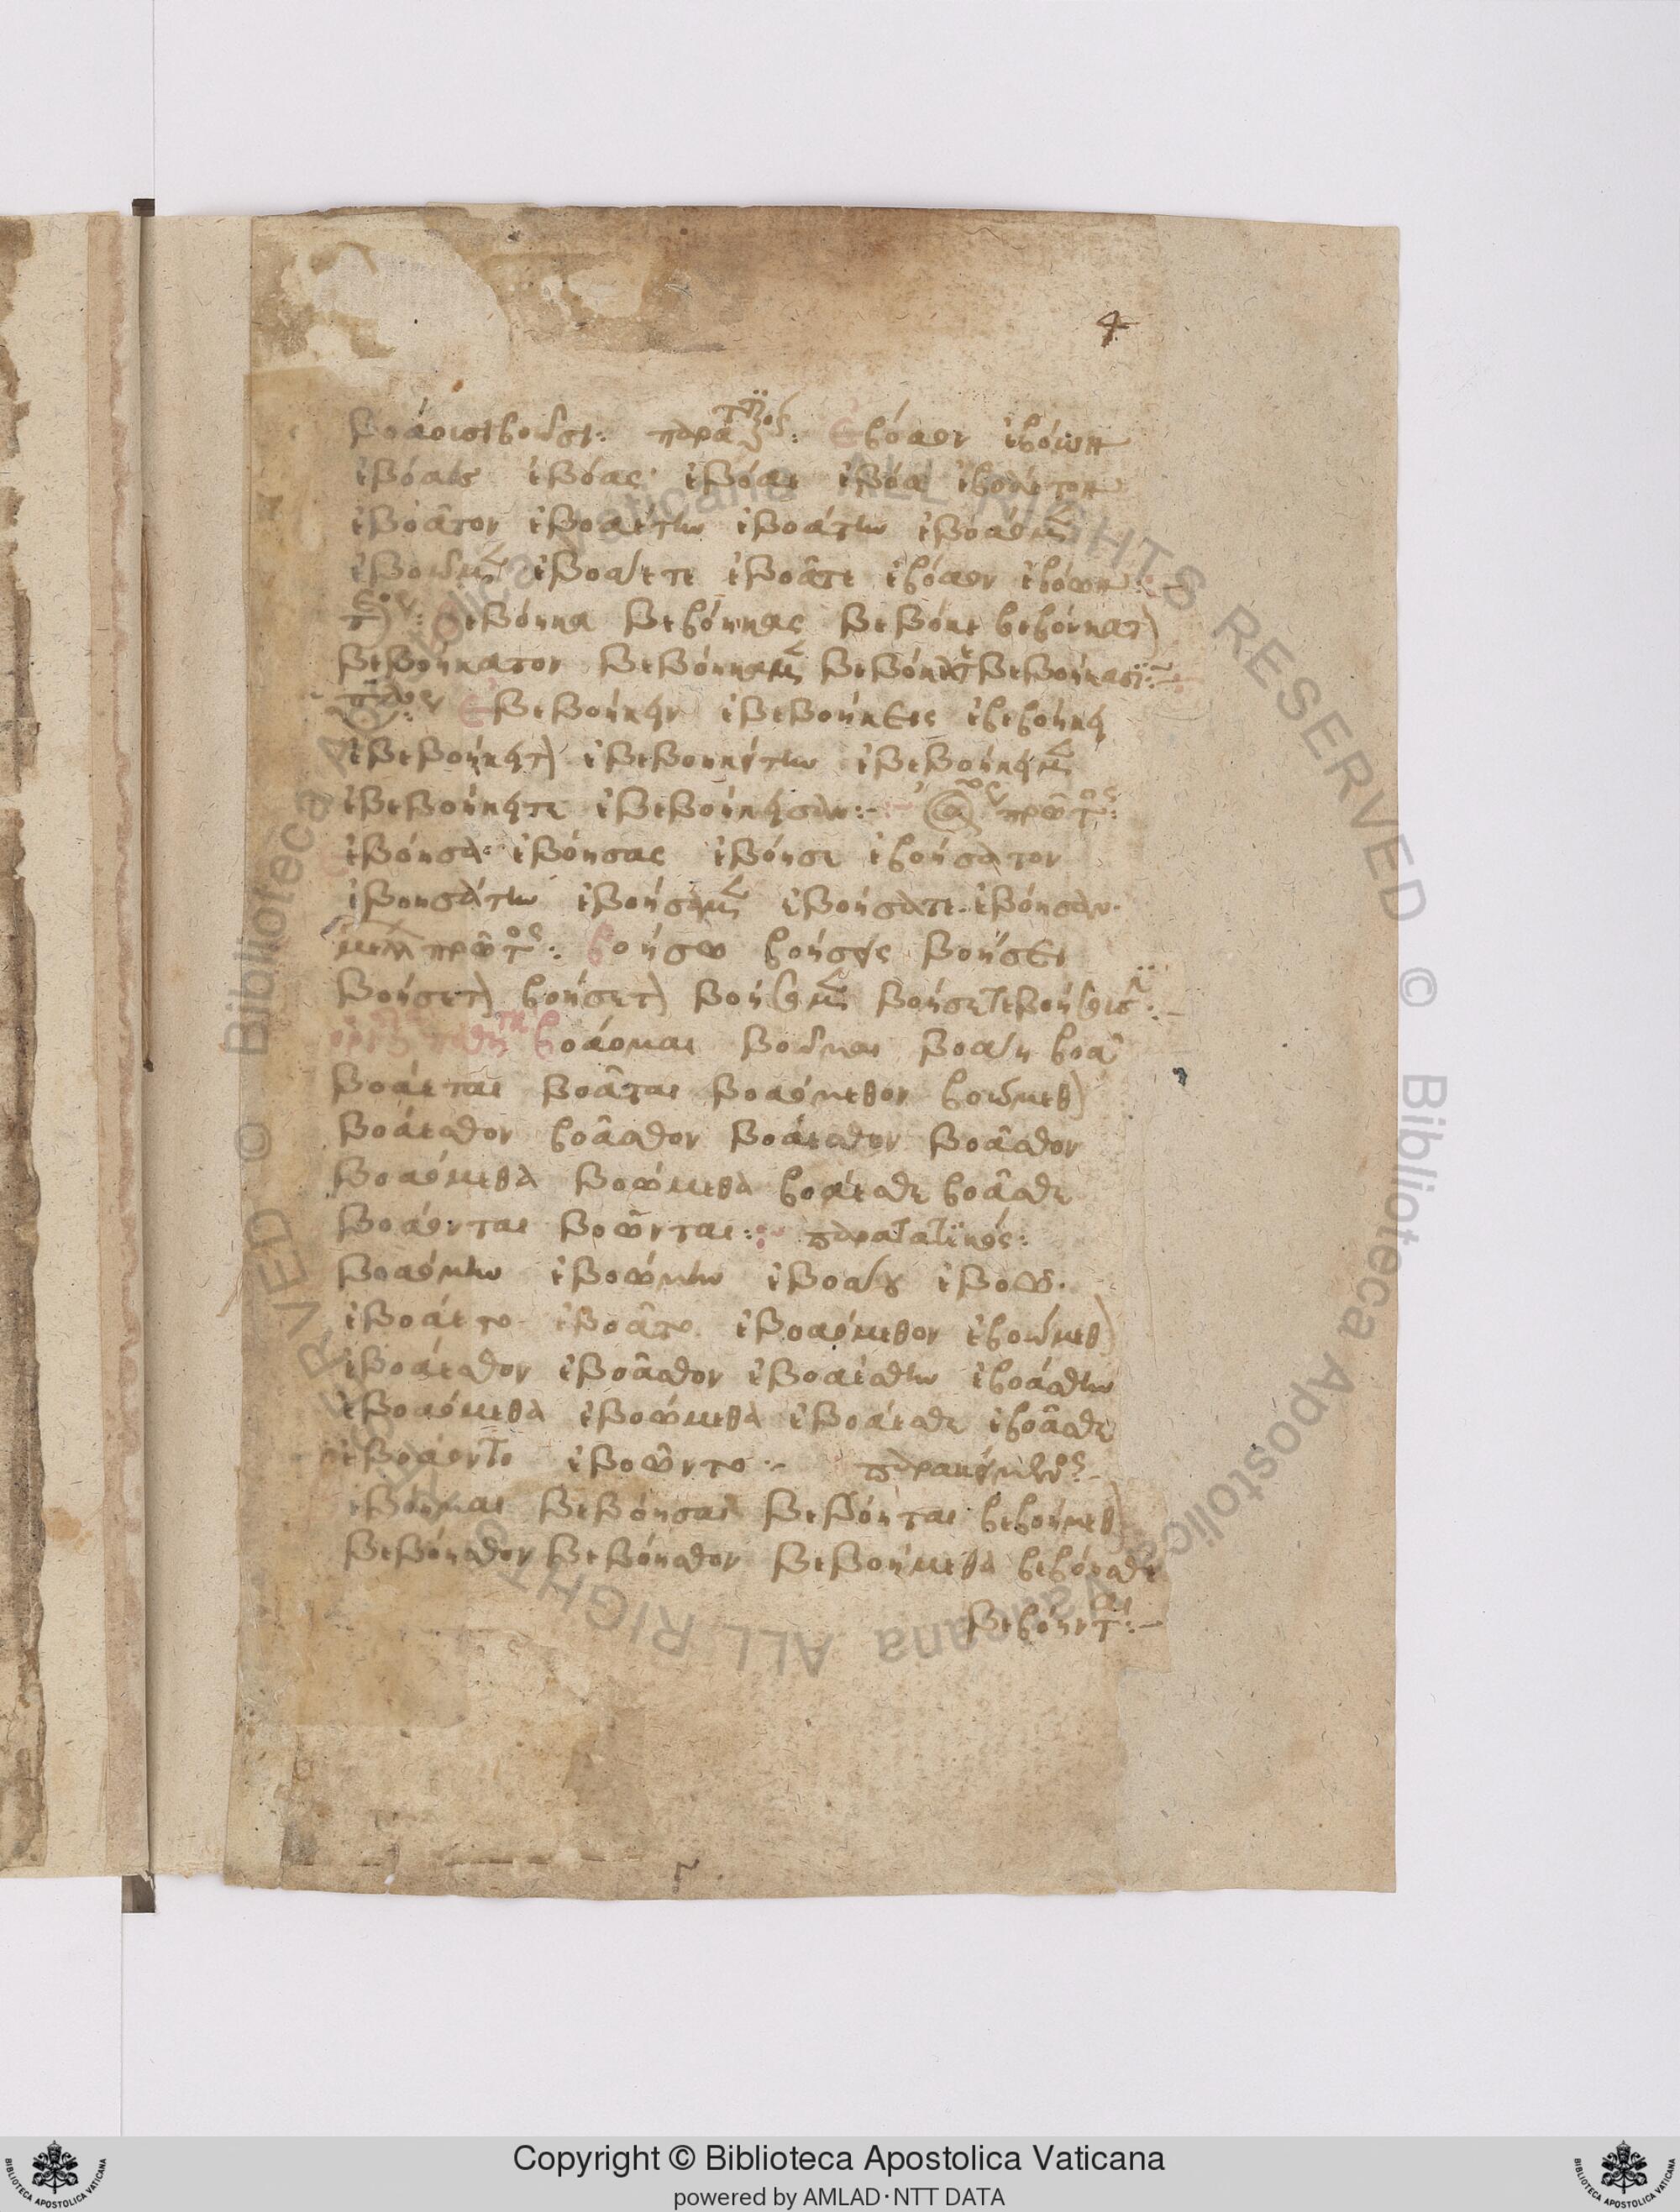 4
βοάουσι βοῶσι: παρατατικός: Εβόαον ἐβόων
ἐβόαες ἐβόας· ἐβόαε ἐβόα ἐβοάετον
ἐβοᾶτον ἐβοαέτην ἐβοάτην ἐβοάομεν
ἐβοῶμεν ἐβοάετε ἐβοᾶτε ἐβόαον ἐβόων:~
βεβόηκα βεβόηκας βεβόηκε βεβόηκατον
βεβοήκατον βεβόηκαμεν βεβόηκατε βεβοήκασι:~
Εβεβοήκην ἐβεβοήκεις ἐβεβοήκη
ἐβεβοήκητον ἐβεβοηκήτην ἐβεβοήκημεν
ἐβεβοήκητε ἐβεβοήκησαν:~ ἀόριστος πρῶτος:
ἐβόησα ἐβόησας ἐβόησε ἐβοήσατον
ἐβοησάτην ἐβοήσαμεν ἐβοήσατε ἐβόησαν·
μέλλων πρῶτος: βοήσω βοήσης βοήσει
βοήσετον βοήσετον βοήσομεν βοήσετε βοήσουσι:~
βοάομαι βοῶμαι βοάῃ βοᾷ
βοάεται βοᾶται βοαόμεθον βοώμεθον
βοάεσθον βοᾶσθον βοάεσθον βοᾶσθον
βοαόμεθα βοώμεθα βοάεσθε βοᾶσθε
βοάονται βοῶνται: παρατατικός:
βοαόμην ἐβοώμην ἐβοάου ἐβοῶ·
ἐβοάετο ἐβοᾶτο ἐβοαόμεθον ἐβοώμεθον
ἐβοάεσθον ἐβοᾶσθον ἐβοαέσθην ἐβοάσθην
ἐβοαόμεθα ἐβοώμεθα ἐβοάεσθε ἐβοᾶσθε
ἐβοάοντο ἐβοῶντο:~ παρακείμενος:~
ἐβόημαι βεβόησαι βεβόηται βεβοήμεθον
βεβόησθον βεβόησθον βεβοήμεθα βεβόησθε
βεβόηνται:~
Copyright © Biblioteca Apostolica Vaticana
powered by AMLAD·NTT DATA